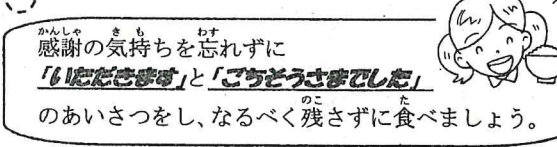 感謝の気持ちを忘れずに
「いただきます」と「ごちそうさまでした」
のあいさつをし、なるべく残さずに食べましょう。